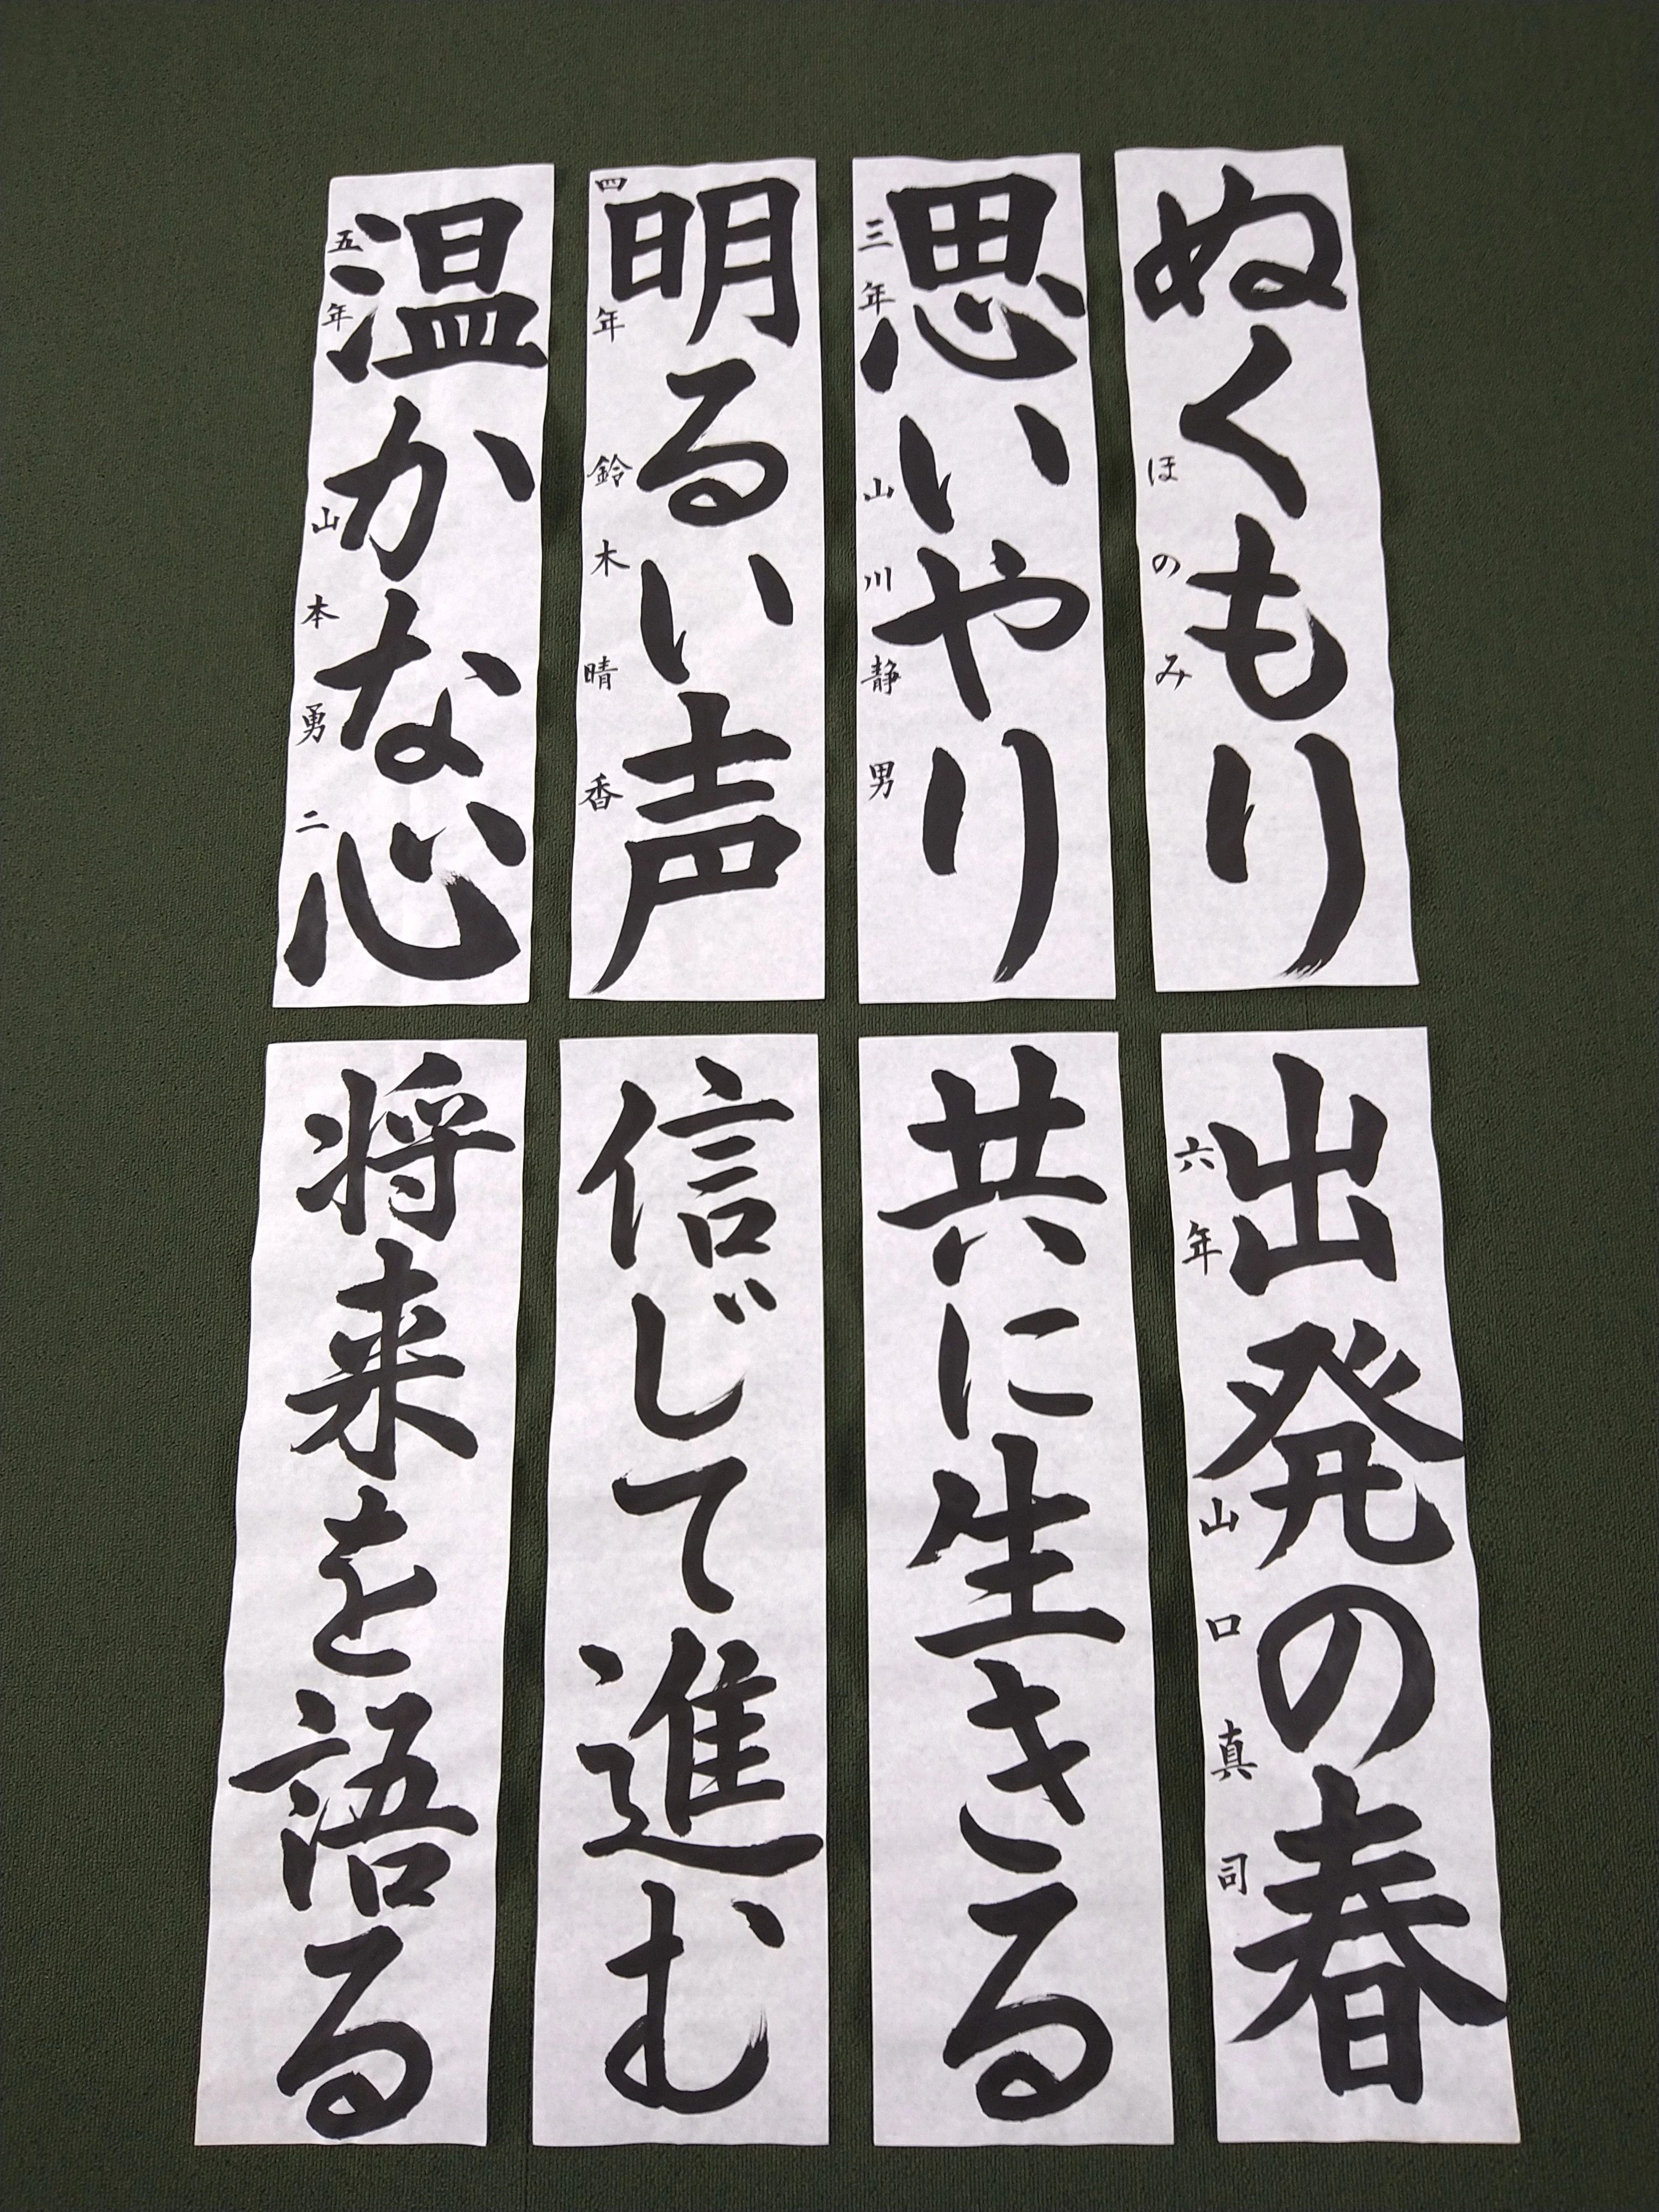 ぬくもり
ほのみ
思いやり
三年 山川静男
明るい声
四年 鈴木晴香
温かな心
五年 山本勇二
出発の春
六年 山口真司
共に生きる
信じて進む
将来を語る